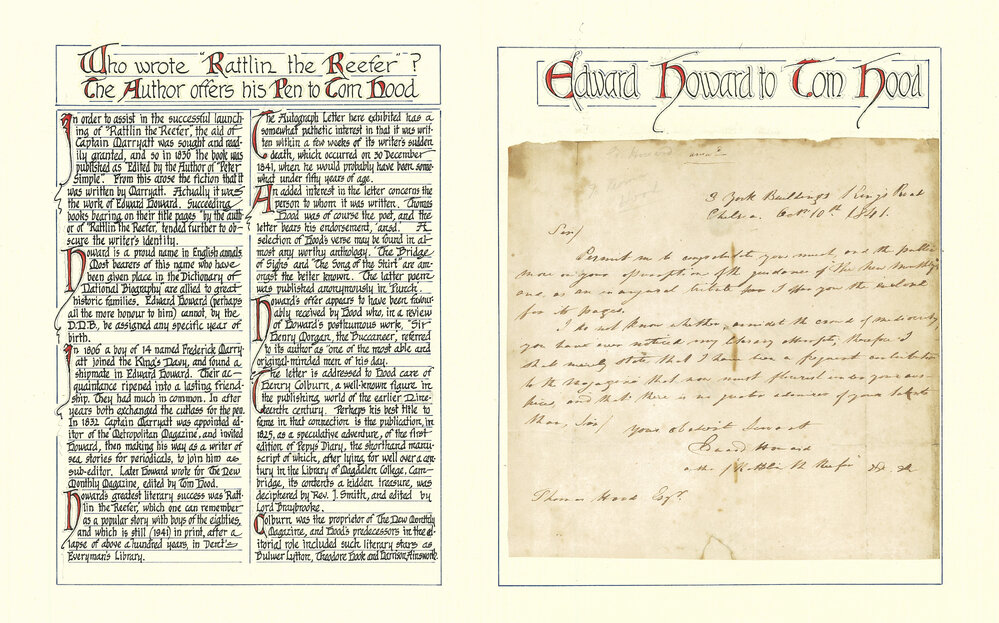 Who wrote "Rattlin the Reefer"?
The Author offers his Pen to Tom Hood
In order to assist in the successful launch-
ing of "Rattlin the Reefer," the aid of
Captain Marryatt was sought and read-
ily granted, and so in 1836 the book was
published as "Edited by the Author of "Peter
Simple". From this arose the fiction that it
was written by Marryatt. Actually it was
the work of Edward Howard. Succeeding
books bearing on their title pages "by the auth-
or of "Rattlin the Reefer," tended further to ob-
scure the writer's identity.
Howard is a proud name in English annals.
Most bearers of this name who have
been given place in the Dictionary of
National Biography are allied to great
historic families. Edward Howard (perhaps
all the more honour to him) cannot, by the
D.N.B., be assigned any specific year of
birth.
In 1806 a boy of 14 named Frederick Marry-
att joined the King's Navy, and found a
shipmate in Edward Howard. Their ac-
quaintance ripened into a lasting friend-
ship. They had much in common. In after
years both exchanged the cutlass for the pen.
In 1832 Captain Marryatt was appointed ed-
itor of the Metropolitan Magazine, and invited
Howard, then making his way as a writer of
sea stories for periodicals, to join him as
sub-editor. Later Howard wrote for The New
Monthly Magazine, edited by Tom Hood.
Howard's greatest literary success was "Ratt-
lin the Reefer," which one can remember
as a popular story with boys of the eighties,
and which is still (1941) in print, after a
lapse of above a hundred years, in Dent's
Everyman's Library.
The Autograph Letter here exhibited has a
somewhat pathetic interest in that it was writ-
ten within a few weeks of its writer's sudden
death, which occurred on 30 December
1841, when he would probably have been some-
what under fifty years of age.
An added interest in the letter concerns the
person to whom it was written. Thomas
Hood was of course the poet, and the
letter bears his endorsement, ansd. A
selection of Hood's verse may be found in al-
most any worthy anthology. "The Bridge
of Sighs" and "The Song of the Shirt" are am-
ongst the better known. The latter poem
was published anonymously in Punch.
Howard's offer appears to have been favour-
ably received by Hood who, in a review
of Howard's posthumous work, "Sir
Henry Morgan, the Buccaneer," referred
to its author as "one of the most able and
original-minded men of his day.
The letter is addressed to Hood care of
Henry Colburn, a well-known figure in
the publishing world of the earlier Nine-
teenth century. Perhaps his best title to
fame in that connection is the publication, in
1825, as a speculative adventure, of the first
edition of Pepys' Diary, the shorthand manu-
script of which, after lying for well over a cen-
tury in the Library of Magdalen College, Cam-
bridge, its contents a hidden treasure, was
deciphered by Rev. J. Smith, and edited by
Lord Braybrooke.
Colburn was the proprietor of The New Monthly
Magazine, and Hood's predecessors in the ed-
itorial role included such literary stars as
Bulwer Lytton, Theodore Hook and Harrison Ainsworth.
Edward Howard to Tom Hood
ansd
3 York Buildings Kings Road
Chelsea. Octr 10th 1841.
Sir/
Permit me to congratulate you most, and the public
more on your assumption of the guidance of The New Monthly
and, as an inaugural tribute pray I offer you the enclosed
for its pages.
I do not know whether, amidst the crowd of mediocrity
you have ever noticed my literary attempts, therefore I
shall merely state that I have been a frequent contributor
to the magazine that now must flourish under your aus-
pices, and that there is no greater admirer of your talents
than, Sir/
Your obedient Servant
Edward Howard
author of Rattlin the Reefer &c &c
Thomas Hood Esqr.